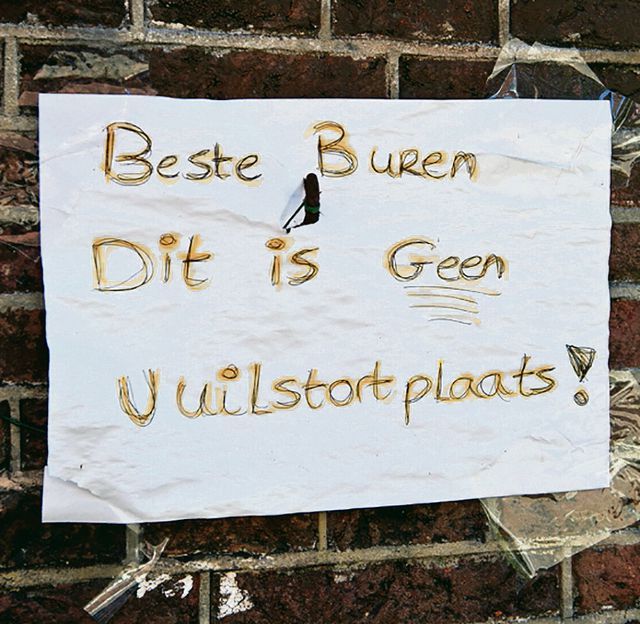 Beste Buren
Dit is Geen
Vuilstortplaats!